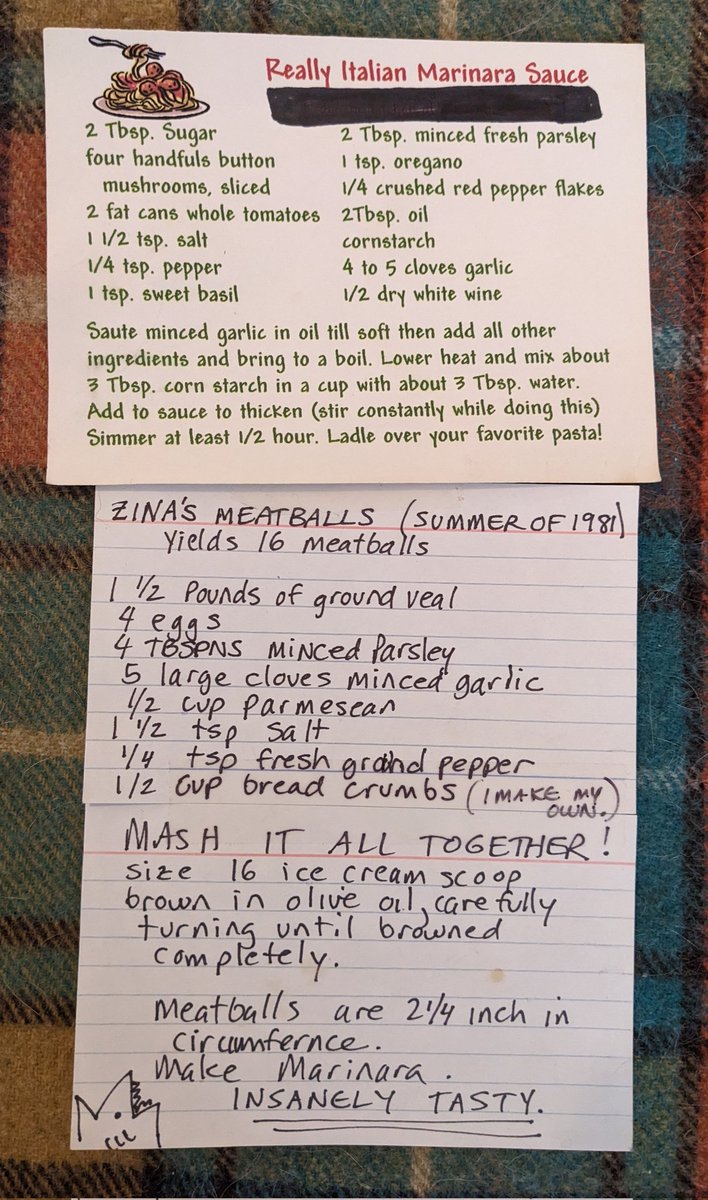 Really Italian Marinara Sauce
2 Tbsp. Sugar
four handfuls button
mushrooms, sliced
2 fat cans whole tomatoes
1 1/2 tsp. salt
1/4 tsp. pepper
1 tsp. sweet basil
2 Tbsp. minced fresh parsley
1 tsp. oregano
1/4 crushed red pepper flakes
2Tbsp. oil
cornstarch
4 to 5 cloves garlic
1/2 dry white wine
Saute minced garlic in oil till soft then add all other
ingredients and bring to a boil. Lower heat and mix about
3 Tbsp. corn starch in a cup with about 3 Tbsp. water.
Add to sauce to thicken (stir constantly while doing this)
Simmer at least 1/2 hour. Ladle over your favorite pasta!
ZINA'S MEATBALLS (SUMMER OF 1981)
Yields 16 meatballs
1 1/2 Pounds of ground veal
4 eggs
4 TBSPNS MINCED Parsley
5 large cloves minced garlic
1/2 cup parmesean
1 1/2 tsp salt
1/4 tsp fresh grond pepper
1/2 cup bread crumbs (I MAKE MY
OWN.)
MASH IT ALL TOGETHER!
size 16 ice cream scoop
brown in olive oil, carefully
turning until browned
completely.
Meatballs are 2 1/4 inch in
circumfernce.
Make Marinara.
INSANELY TASTY.